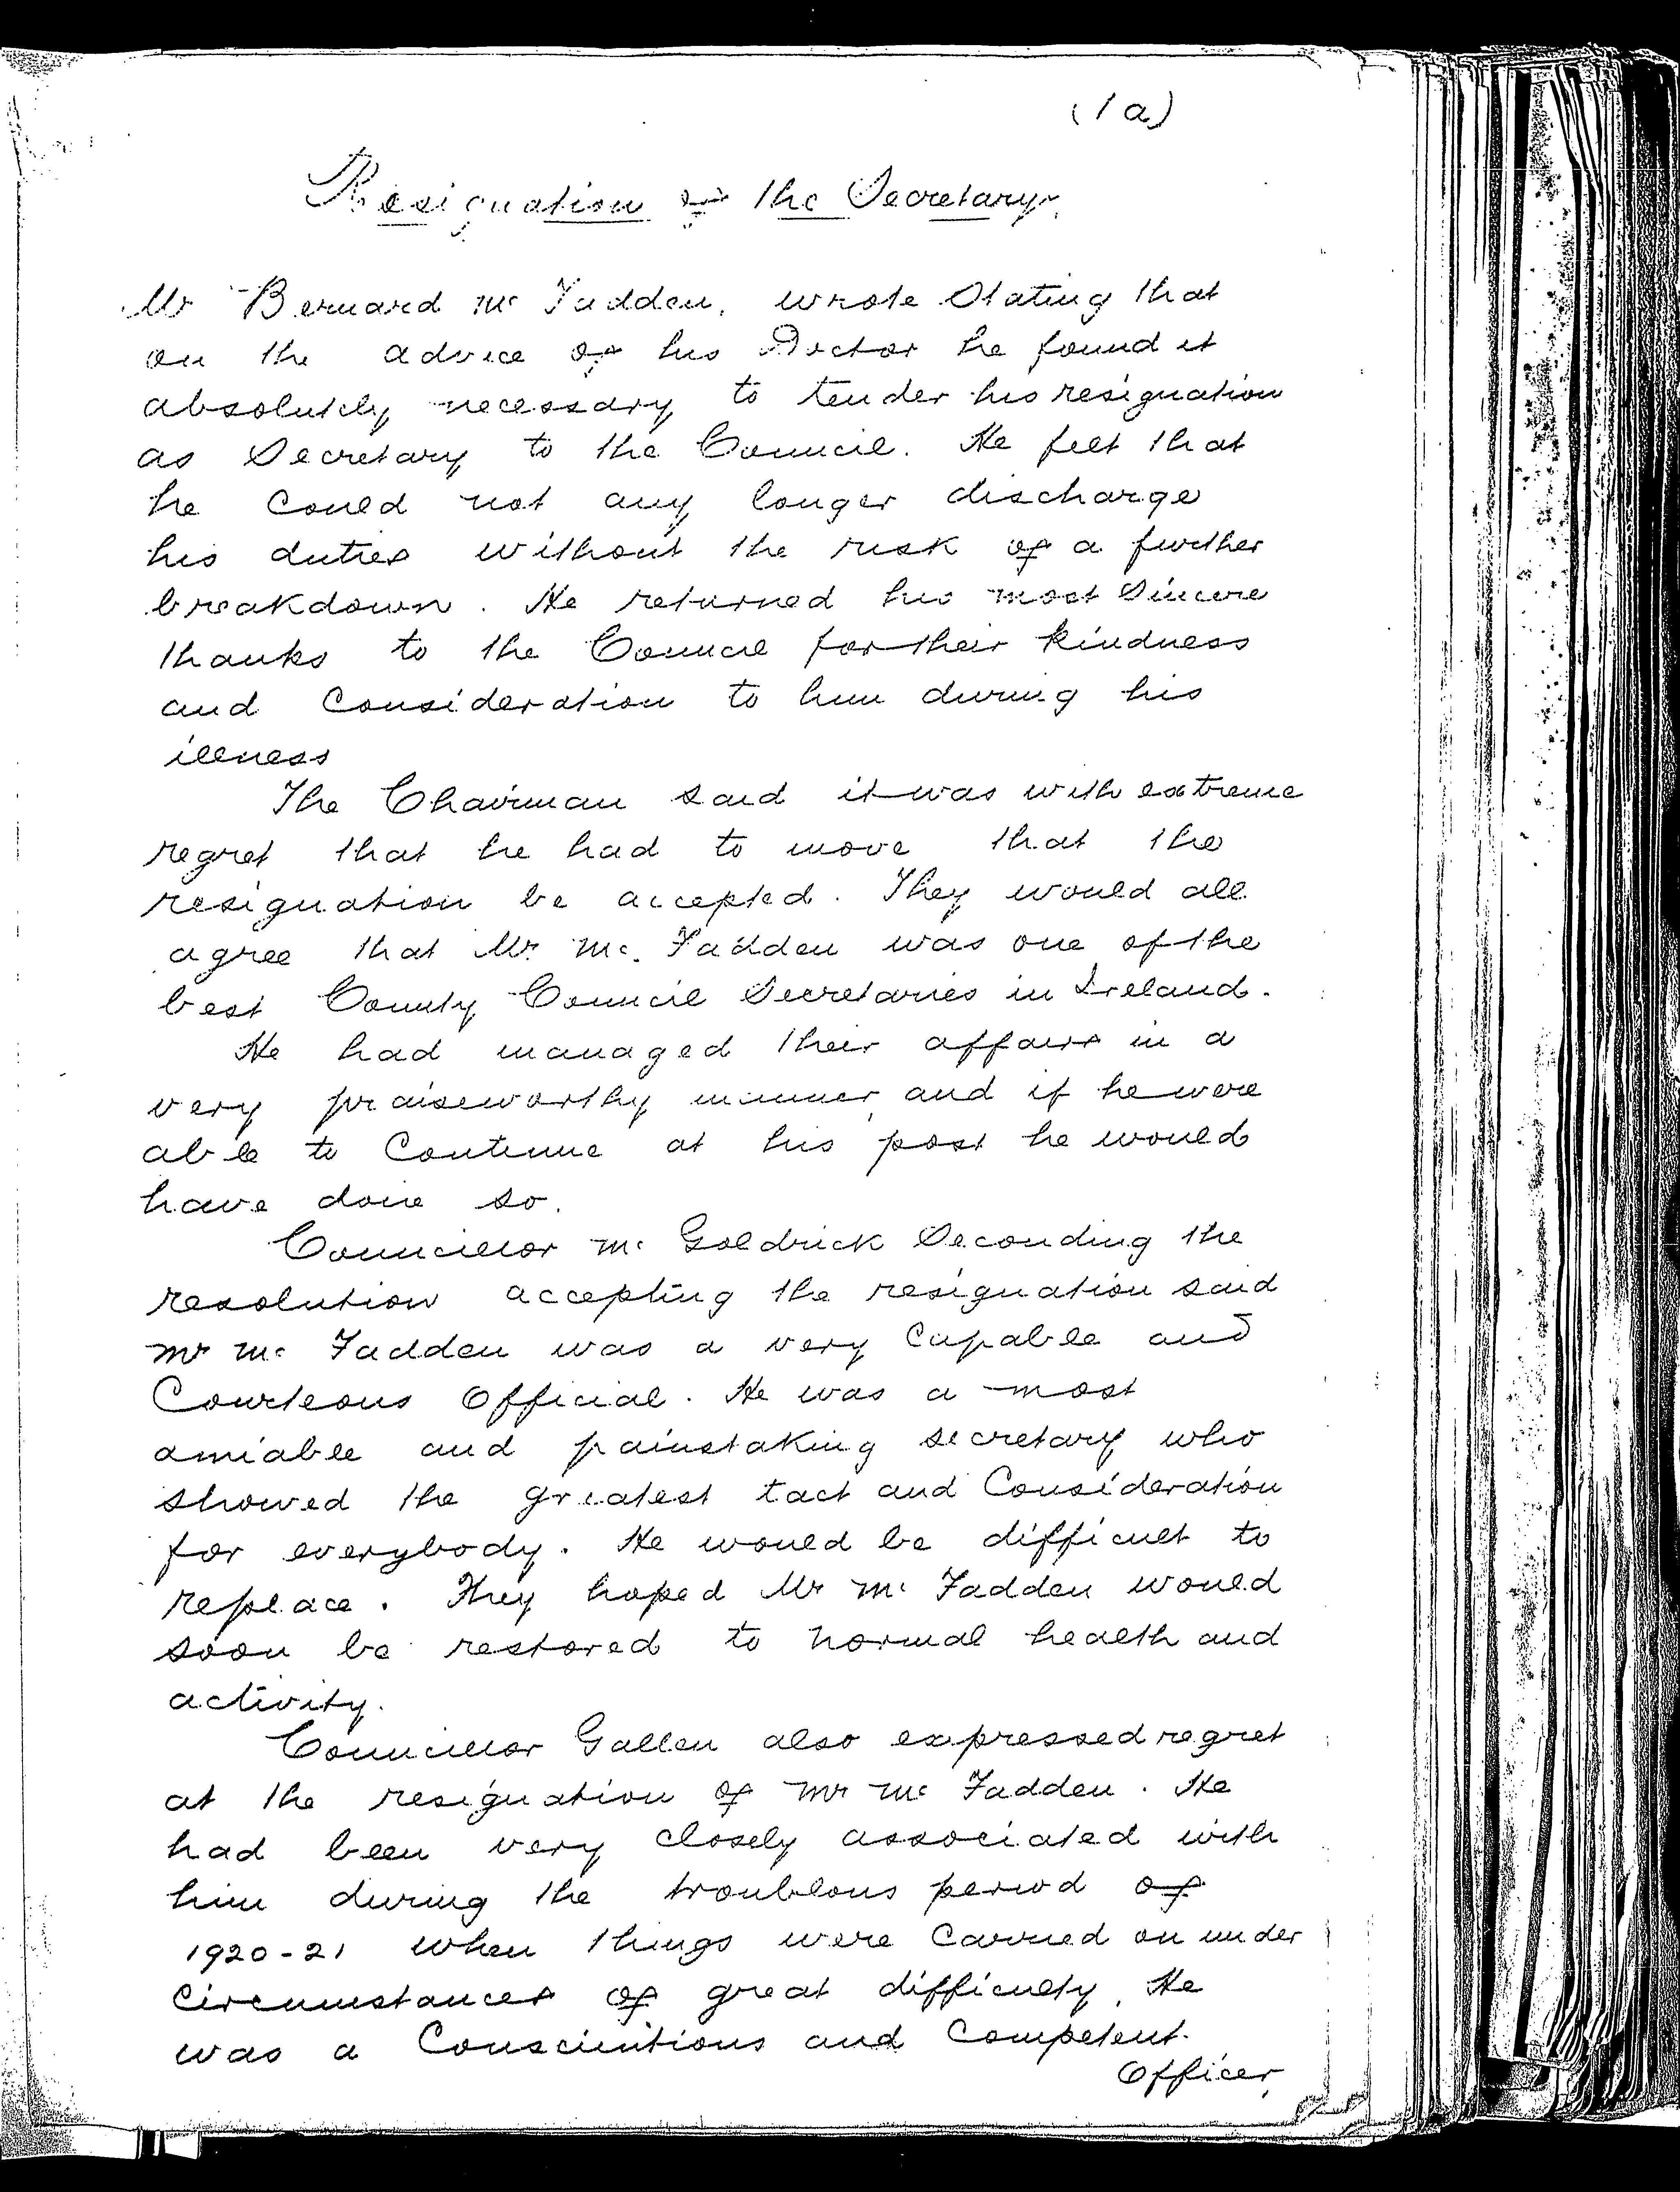 (1a)
Resignation of the Secretary.
Mr Bernard Mc Fadden, wrote Stating that
on the advice of his Doctor he found it
absolutely necessary to tender his resignation
as Secretary to the Council. He felt that
he Could not any longer discharge
his duties without the risk of a further
breakdown. He returned his most Sincere
thanks to the Council for their kindness
and Consideration to him during his
illness
The Chairman said it was with extreme
regret that he had to move that the
resignation be accepted. They would all
agree that Mr Mc. Fadden was one of the
best County Council Secretaries in Ireland.
He had managed their affairs in a
very praiseworthy manner, and if he were
able to Continue at his post he would
have done so.
Councillor Mc Goldrick Seconding the
resolution accepting the resignation said
Mr Mc Fadden was a very Capable and
Courteous Official. He was a most
amiable and painstaking secretary who
showed the greatest tact and Consideration
for everybody. He would be difficult to
replace. They hoped Mr Mc Fadden would
soon be restored to normal health and
activity.
Councillor Gallen also expressed regret
at the resignation of Mr Mc Fadden. He
had been very closely associated with
him during the troublous period of
1920-21 when things were Carried on under
Circumstances of great difficulty. He
was a Conscientious and Competent
Officer,